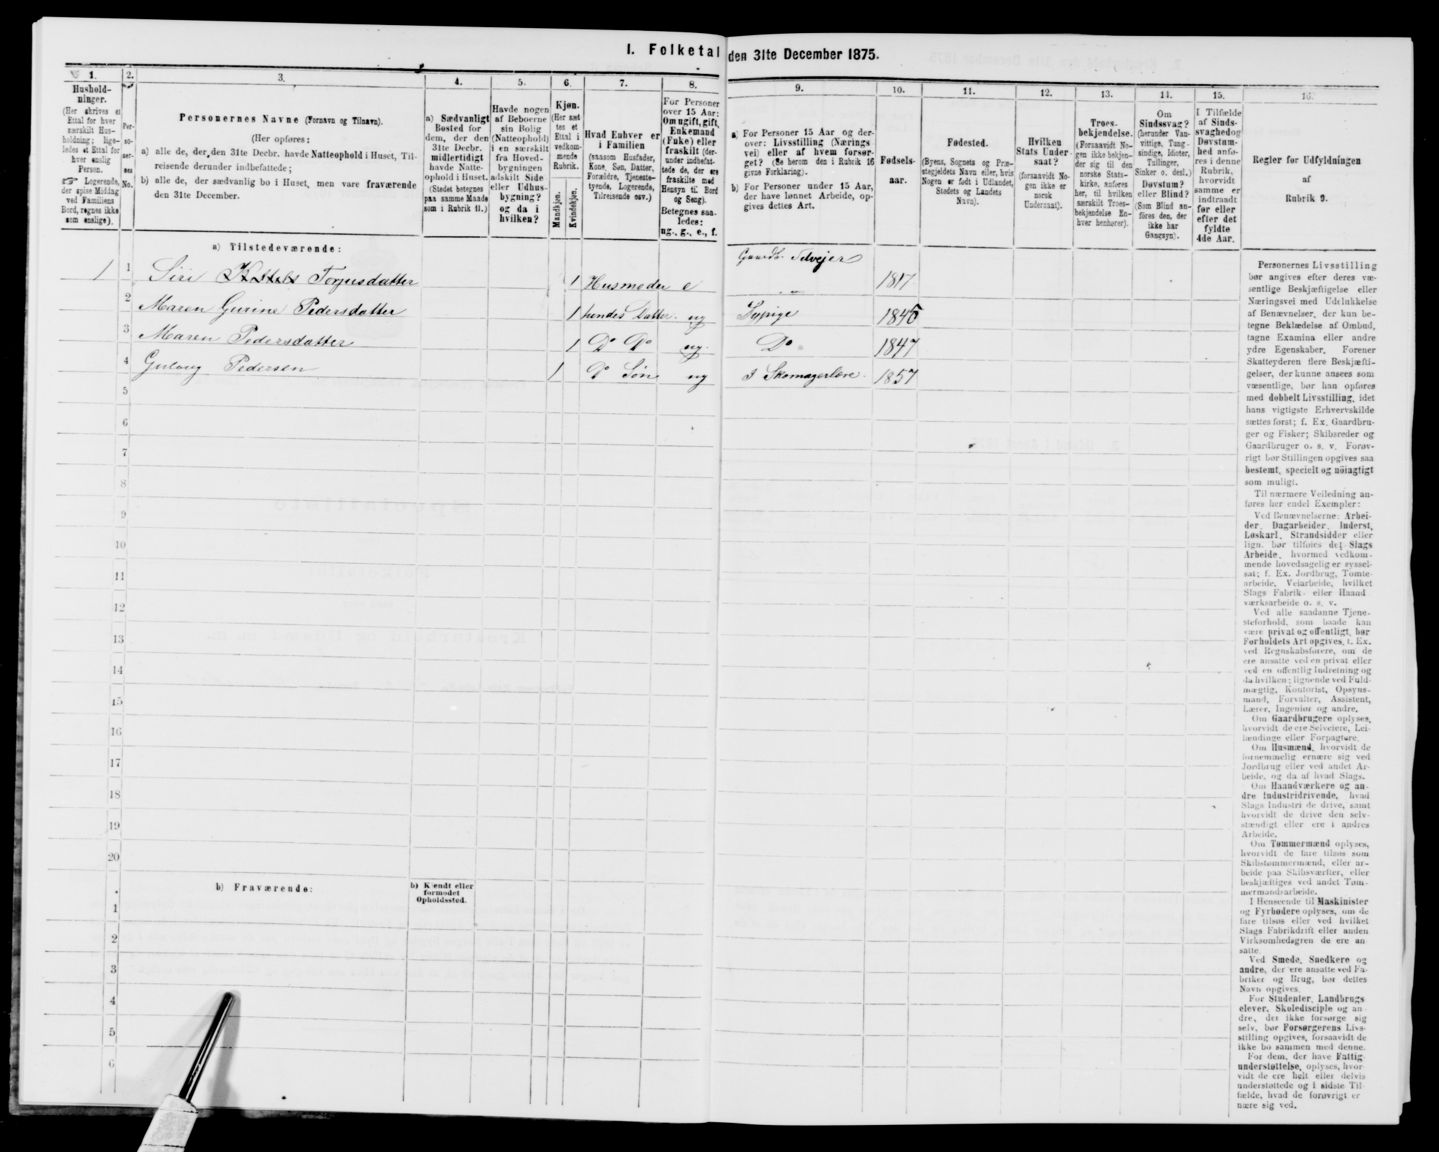 I. Folketal den 31te December 1875.
1.
Hushold-
ninger.
(Her skrives et
Ettal for hver
særskilt Hus-
holdning; lige-
ledes et Ettal for
hver enslig
Person.
☞ Logerende,
der spise Middag
ved Familiens
Bord, regnes ikke
som enslige).
2.
Per-
so-
ner-
nes
No.
3.
Personernes Navne (Fornavn og Tilnavn).
(Her opføres:
a) alle de, der den 31te Decbr. havde Natteophold i Huset, Til-
reisende derunder indbefattede;
b) alle de, der sædvanlig bo i Huset, men vare fraværende
den 31te December.
4.
a) Sædvanligt
Bosted for
dem, der den
31te Decbr.
midlertidigt
havde Natte-
ophold i Huset.
(Stedet betegnes
paa samme Maade
som i Rubrik 11.)
5.
Havde nogen
af Beboerne
sin Bolig
(Natteophold)
i en særskilt
fra Hoved-
bygningen
adskilt Side
eller Udhus-
bygning?
og da i
hvilken?
6.
Kjøn.
(Her sæt
tes et
Ettal i
vedkom-
mende
Rubrik.
Mandkjøn.
Kvindekjøn.
7.
Hvad Enhver er
i Familien
(saasom Husfader,
Kone, Søn, Datter,
Forældre, Tjeneste-
tyende, Logerende,
Tilreisende osv.)
8.
For Personer
over 15 Aar:
Om ugift, gift,
Enkemand
(Enke) eller
fraskilt (der-
under indbefat-
tede de, der ere
fraskilte med
Hensyn til Bord
og Seng).
Betegnes saa-
ledes:
ug., g., e., f.
9.
a) For Personer 15 Aar og der-
over: Livsstilling (Nærings
vei) eller af hvem forsør-
get? (Se herom den i Rubrik 16
givne Forklaring).
b) For Personer under 15 Aar,
der have lønnet Arbeide, op-
gives dettes Art.
10.
Fødsels-
aar.
11.
Fødested.
(Byens, Sognets og Præ-
stegjeldets Navn eller, hvis
Nogen er født i Udlandet,
Stedets og Landets
Navn).
12.
Hvilken
Stats Under-
saat?
(forsaavidt No-
gen ikke er
norsk
Undersaat).
13.
Troes-
bekjendelse.
(Forsaavidt No-
gen ikke bekjen-
der sig til den
norske Stats-
kirke, anføres
her, til hvilken
særskilt Troes-
bekjendelse En-
hver henhører).
14.
Om
Sindssvag?
(herunder Van-
vittige, Tung-
sindige, Idioter,
Tullinger,
Sinker o. desl.)
Døvstum?
eller Blind?
(Som Blind an-
føres den, der
ikke har
Gangsyn).
15.
I Tilfælde
af Sinds-
svaghed og
Døvstum-
hed anfø-
res i denne
Rubrik,
hvorvidt
samme er
indtraadt
før eller
efter det
fyldte
4de Aar.
16.
Regler for Udfyldningen
af
Rubrik 9.
a) Tilstedeværende:
1 1 Siri Torjusdatter 1 Husmoder e Gaardb. Selvejer 1817
2 Maren Gurine Pedersdatter 1 hendes Datter. ug Sypige 1846
3 Maren Pedersdatter 1 Do Do ug. Do 1847
4 Gulaug Pedersen 1 Do Søn ug I Skomagerlære. 1857
5
6
7
8
9
10
11
12
13
14
15
16
17
18
19
20
b) Fraværende:
b) Kjendt eller
formodet
Opholdssted.
1
2
3
4
5
6
Personernes Livsstilling
bør angives efter deres væ-
sentlige Beskjæftigelse eller
Næringsvei med Udelukkelse
af Benævnelser, der kun be-
tegne Beklædelse af Ombud,
tagne Examina eller andre
ydre Egenskaber. Forener
Skatteyderen flere Beskjæfti-
gelser, der kunne ansees som
væsentlige, bør han opføres
med dobbelt Livsstilling, idet
hans vigtigste Erhvervskilde
sættes først; f. Ex. Gaardbru-
ger og Fisker; Skibsreder og
Gaardbruger o. s. v. Forøv-
rigt bør Stillingen opgives saa
bestemt, specielt og nøiagtigt
som muligt.
Til nærmere Veiledning an-
føres her endel Exempler:
Ved Benævnelserne: Arbei-
der, Dagarbeider, Inderst,
Løskarl, Strandsidder eller
lign. bør tilføies det Slags
Arbeide, hvormed vedkom-
mende hovedsagelig er syssel-
sat; f. Ex. Jordbrug, Tomte-
arbeide, Veiarbeide, hvilket
Slags Fabrik- eller Haand
værksarbeide o. s. v.
Ved alle saadanne Tjene-
steforhold, som baade kan
være privat og offentligt, bør
Forholdets Art opgives, f. Ex.
ved Regnskabsførere, om de
ere ansatte ved en privat eller
ved en offentlig Indretning og
da hvilken; lignende ved Fuld-
mægtig, Kontorist, Opsyns-
mand, Forvalter, Assistent,
Lærer, Ingeniør og andre.
Om Gaardbrugere oplyses,
hvorvidt de ere Selveiere, Lei-
lændinge eller Forpagtere.
Om Husmænd, hvorvidt de
fornemmelig ernære sig ved
Jordbrug eller ved andet Ar-
beide, og da af hvad Slags.
Om Haandværkere og an-
dre Industridrivende, hvad
Slags Industri de drive, samt
hvorvidt de drive den selv-
stændigt eller ere i andres
Arbeide.
Om Tømmermænd oplyses,
hvorvidt de fare tilsøs som
Skibstømmermænd, eller ar-
beide paa Skibsværfter, eller
beskjæftiges ved andet Tøm-
mermandsarbeide.
I Henseende til Maskinister
og Fyrbødere oplyses, om de
fare tilsøs eller ved hvilket
Slags Fabrikdrift eller anden
Virksomhedsgren de ere an
satte.
Ved Smede, Snedkere og
andre, der ere ansatte ved Fa-
briker og Brug, bør dettes
Navn opgives.
For Studenter, Landbrugs
elever, Skoledisciple og an-
dre, der ikke forsørge sig
selv, bør Forsørgerens Livs-
stilling opgives, forsaavidt de
ikke bo sammen med denne.
For dem, der have Fattig
understøttelse, oplyses, hvor-
vidt de ere helt eller delvis
understøttede og i sidste Til-
fælde, hvad de forøvrigt er
nære sig ved.